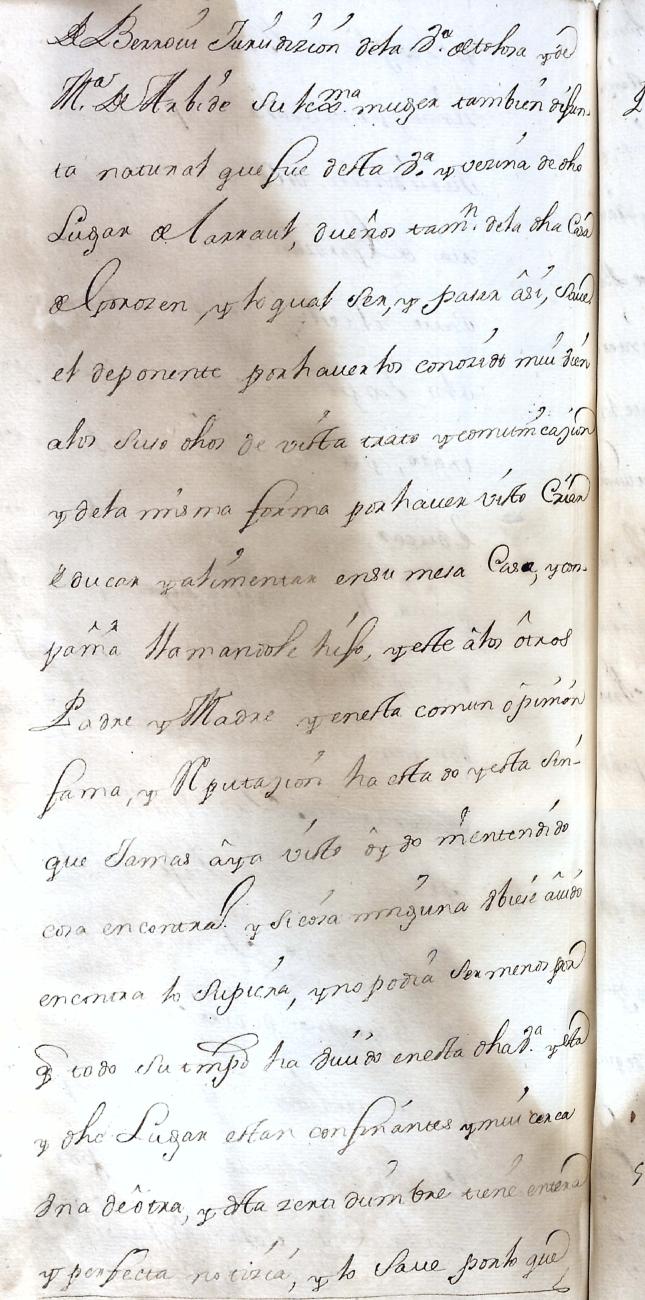 de Berroui Jurisdizion dela V.ª de tolosa y de
M.ª de Arbide su lexma. muger tambien difun-
ta natural que fue desta V.ª y vezina de dho
Lugar de larraul, dueños tamn. dela dha Casa
de Gorozen, y lo qual ser, y pasar asi, save
el deponente por haverlos conozido mui bien
alos suso dhos de vista trato y comunicazion
y dela misma forma por haver visto Criar
educar y alimentar en su mesa Casa, y con-
pañia llamandole hijo, y este alos otros
Padre y Madre y enesta comun opinion
fama, y Reputazion ha estado y esta sin-
que Jamas aya visto oydo ni entendido
cosa encontra. y si cosa ninguna Vbiese auido
encontra lo supiera, y no podia ser menos por
q todo su tmpo ha viuido enesta dha V.ª y esta
y dho Lugar estan confinantes y mui cerca
Vna de otra, y dsta zertidumbre tiene entera
y perfecta notizia, y lo save porlo que